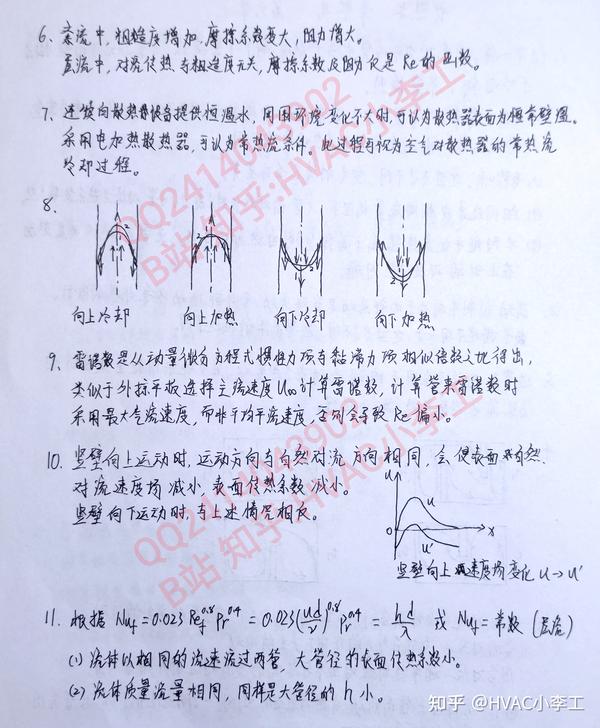 6. 紊流中,粗糙度增加,摩擦系数变大,阻力增大。
层流中,对流传热与粗糙度无关,摩擦系数及阻力仅是Re的函数。
7. 连续向散热器设备提供恒温水,周围环境变化不大时,可认为散热器表面为恒常壁温。
采用电加热散热器,可认为常热流条件。此过程可视为空气对散热器的常热流
冷却过程。
8.
1 2
向上冷却 向上加热 向下冷却 向下加热
9. 雷诺数是从动量微分方程式惯性力项与黏滞力项相似倍数之比得出,
类似于外掠平板选择主流速度U∞计算雷诺数,计算管束雷诺数时
采用最大气流速度,而非平均平流速度,否则会导致Re偏小。
10. 竖壁向上运动时,运动方向与自然对流方向相同,会使表面自然
对流速度场减小,表面传热系数减小。
竖壁向下运动时,与上述情况相反。
u
u
u'
0
x
竖壁向上 速度场变化 u→u'
11. 根据 Nuf=0.023Ref^0.8 Pr^0.4 = 0.023(ud/ν)^0.8 Pr^0.4 = hd/λ 或 Nuf=常数(层流)
(1) 流体以相同的流速流过两管,大管径的表面传热系数小。
(2) 流体质量流量相同,同样是大管径的h小。
B站 知乎:HVAC小李工
知乎 @HVAC小李工